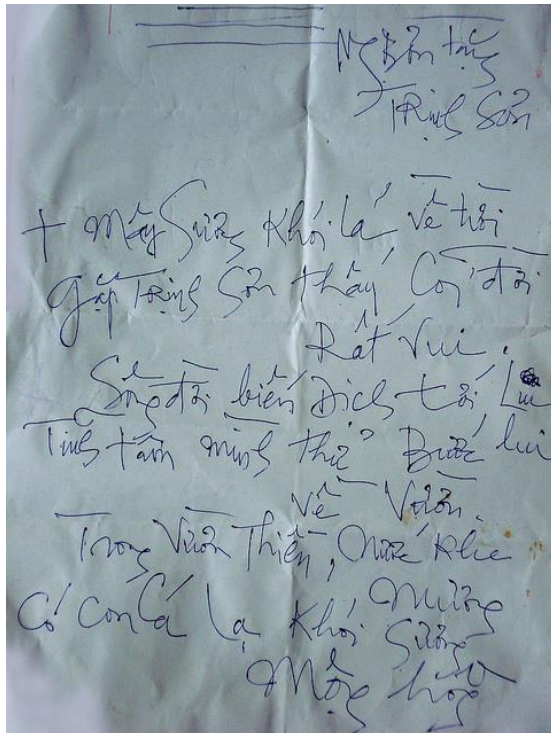 Ng Bổn tặng
Trịnh Sơn
+ Mây Sương Khói lá về trời
gặp Trịnh Sơn thấy Con đời
Rất Vui.
Sống đời biến Dịch tới Lui
Tĩnh tâm mình thử Bước lui
về Vườn.
Trong Vườn Thiền, Nước Khe
Mương
Có Con Cá Lạ Khói Sương
Mông